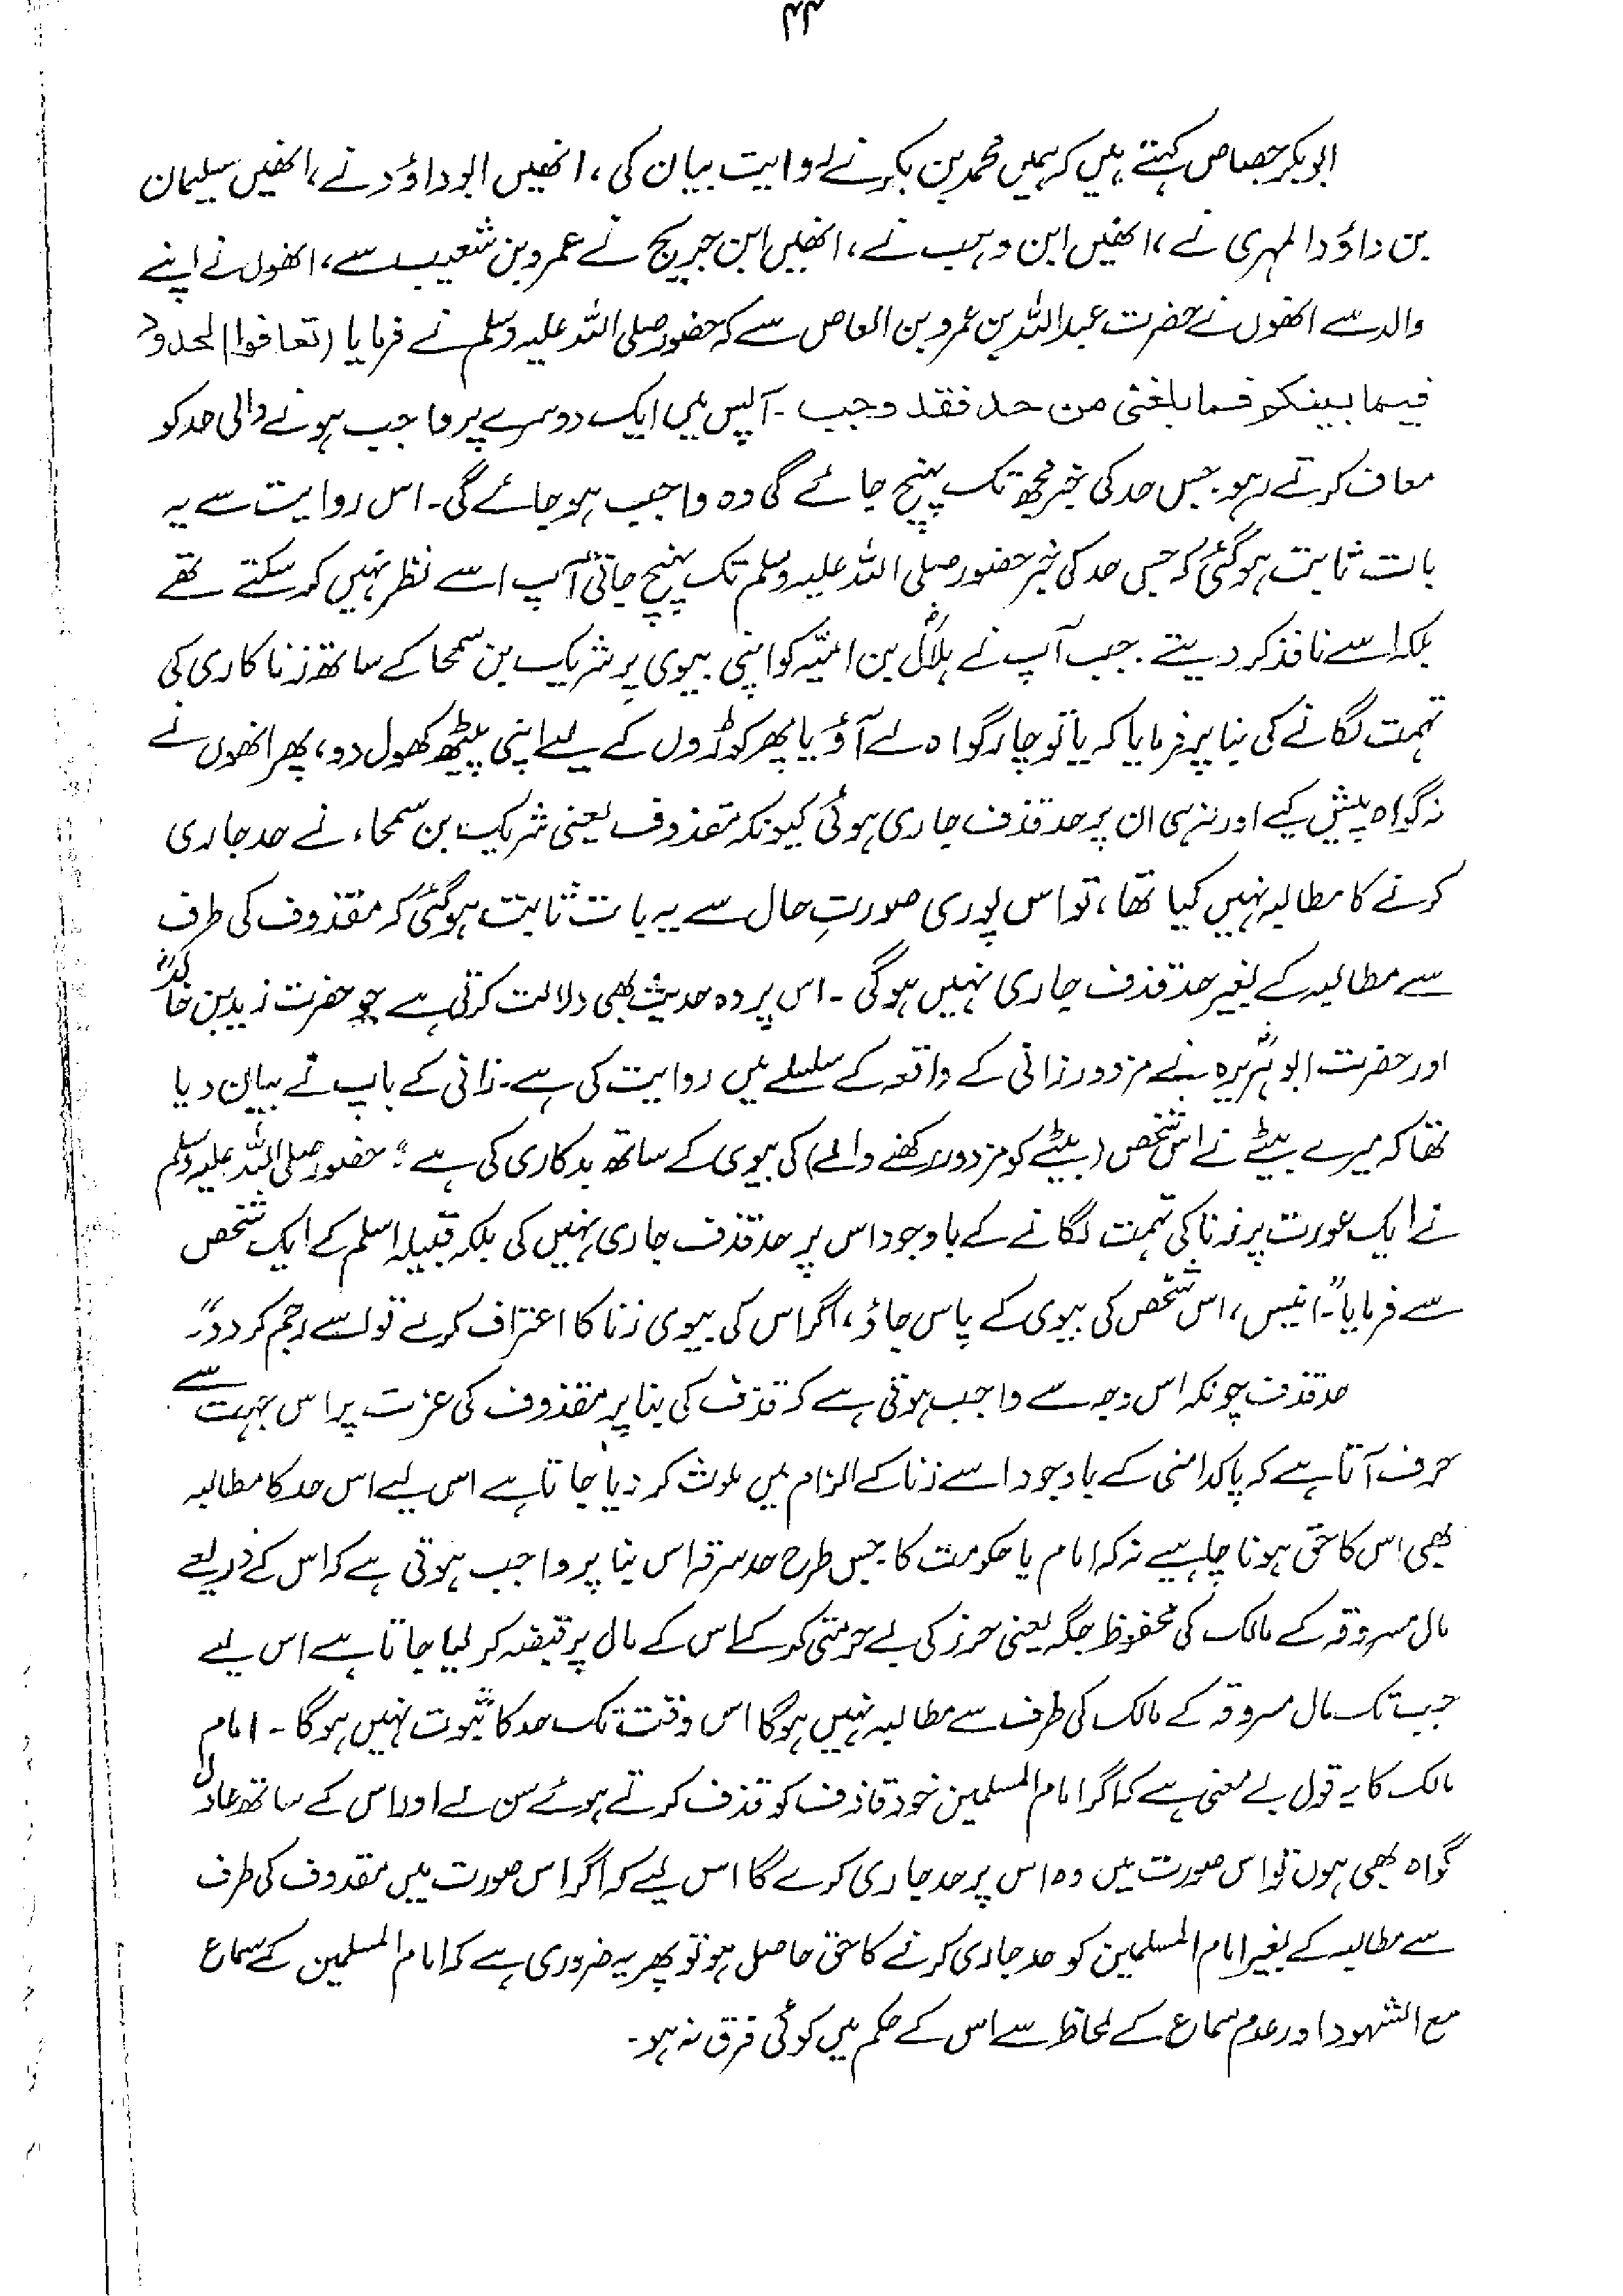 ۴۴
ابوبکر جصاص کہتے ہیں کہ ہمیں محمد بن بکر نے روایت بیان کی، انھیں ابو داؤد نے، انھیں سلیمان
بن داؤد المہری نے، انھیں ابن وہب نے، انھیں ابن جریج نے عمرو بن شعیب سے، انھوں نے اپنے
والد سے انھوں نے حضرت عبداللہ بن عمرو بن العاص سے کہ حضور صلی اللہ علیہ وسلم نے فرمایا (تعافوا الحدود
فیما بینکم فما بلغنی من حد فقد وجب ۔ آپس میں ایک دوسرے پر واجب ہونے والی حد کو
معاف کرتے رہو۔ جس حد کی خبر مجھ تک پہنچ جائے گی وہ واجب ہو جائے گی۔ اس روایت سے یہ
بات ثابت ہو گئی کہ جس حد کی خبر حضور صلی اللہ علیہ وسلم تک پہنچ جاتی آپ اسے نظر نہیں کر سکتے تھے
بلکہ اسے نافذ کر دیتے۔ جب آپ نے ہلالؓ بن امیّہ کو اپنی بیوی پر شریک بن سمحا کے ساتھ زنا کاری کی
تہمت لگانے کی بنا پر فرمایا کہ یا تو چار گواہ لے آؤ یا پھر کوڑوں کے لیے اپنی پیٹھ کھول دو، پھر انھوں نے
نہ گواہ پیش کیے اور نہ ہی ان پر حد قذف جاری ہوئی کیونکہ مقذوف یعنی شریک بن سمحاء نے حد جاری
کرنے کا مطالبہ نہیں کیا تھا، تو اس پوری صورتِ حال سے یہ بات ثابت ہو گئی کہ مقذوف کی طرف
سے مطالبہ کے بغیر حد قذف جاری نہیں ہو گی ۔ اس پر وہ حدیث بھی دلالت کرتی ہے جو حضرت زید بن خالدؓ
اور حضرت ابو ہریرہؓ نے مزدور زانی کے واقعہ کے سلسلے میں روایت کی ہے۔ زانی کے باپ نے بیان دیا
تھا کہ میرے بیٹے نے اس شخص (بیٹے کو مزدور رکھنے والے) کی بیوی کے ساتھ بدکاری کی ہے" حضور صلی اللہ علیہ وسلم
نے ایک عورت پر زنا کی تہمت لگانے کے باوجود اس پر حد قذف جاری نہیں کی بلکہ قبیلہ اسلم کے ایک شخص
سے فرمایا "۔ انیس، اس شخص کی بیوی کے پاس جاؤ، اگر اس کی بیوی زنا کا اعتراف کرے تو اسے رجم کر دو"۔
حد قذف چونکہ اس وجہ سے واجب ہوتی ہے کہ قذف کی بنا پر مقذوف کی عزت پر اس جہت سے
حرف آتا ہے کہ پاکدامنی کے باوجود اسے زنا کے الزام میں ملوث کر دیا جاتا ہے اس لیے اس حد کا مطالبہ
بھی اس کا حق ہونا چاہیے نہ کہ امام یا حکومت کا۔ جس طرح حد سرقہ اس بنا پر واجب ہوتی ہے کہ اس کے ذریعے
مال مسروقہ کے مالک کی محفوظ جگہ یعنی حرز کی بے حرمتی کر کے اس کے مال پر قبضہ کر لیا جاتا ہے اس لیے
جب تک مال مسروقہ کے مالک کی طرف سے مطالبہ نہیں ہوگا اس وقت تک حد کا ثبوت نہیں ہوگا ۔ امام
مالک کا یہ قول بے معنی ہے کہ اگر امام المسلمین خود قاذف کو قذف کرتے ہوئے سن لے اور اس کے ساتھ عادل
گواہ بھی ہوں تو اس صورت میں وہ اس پر حد جاری کرے گا اس لیے کہ اگر اس صورت میں مقذوف کی طرف
سے مطالبہ کے بغیر امام المسلمین کو حد جاری کرنے کا حق حاصل ہو تو پھر یہ ضروری ہے کہ امام المسلمین کے سماع
مع الشہود اور عدم سماع کے لحاظ سے اس کے حکم میں کوئی فرق نہ ہو۔